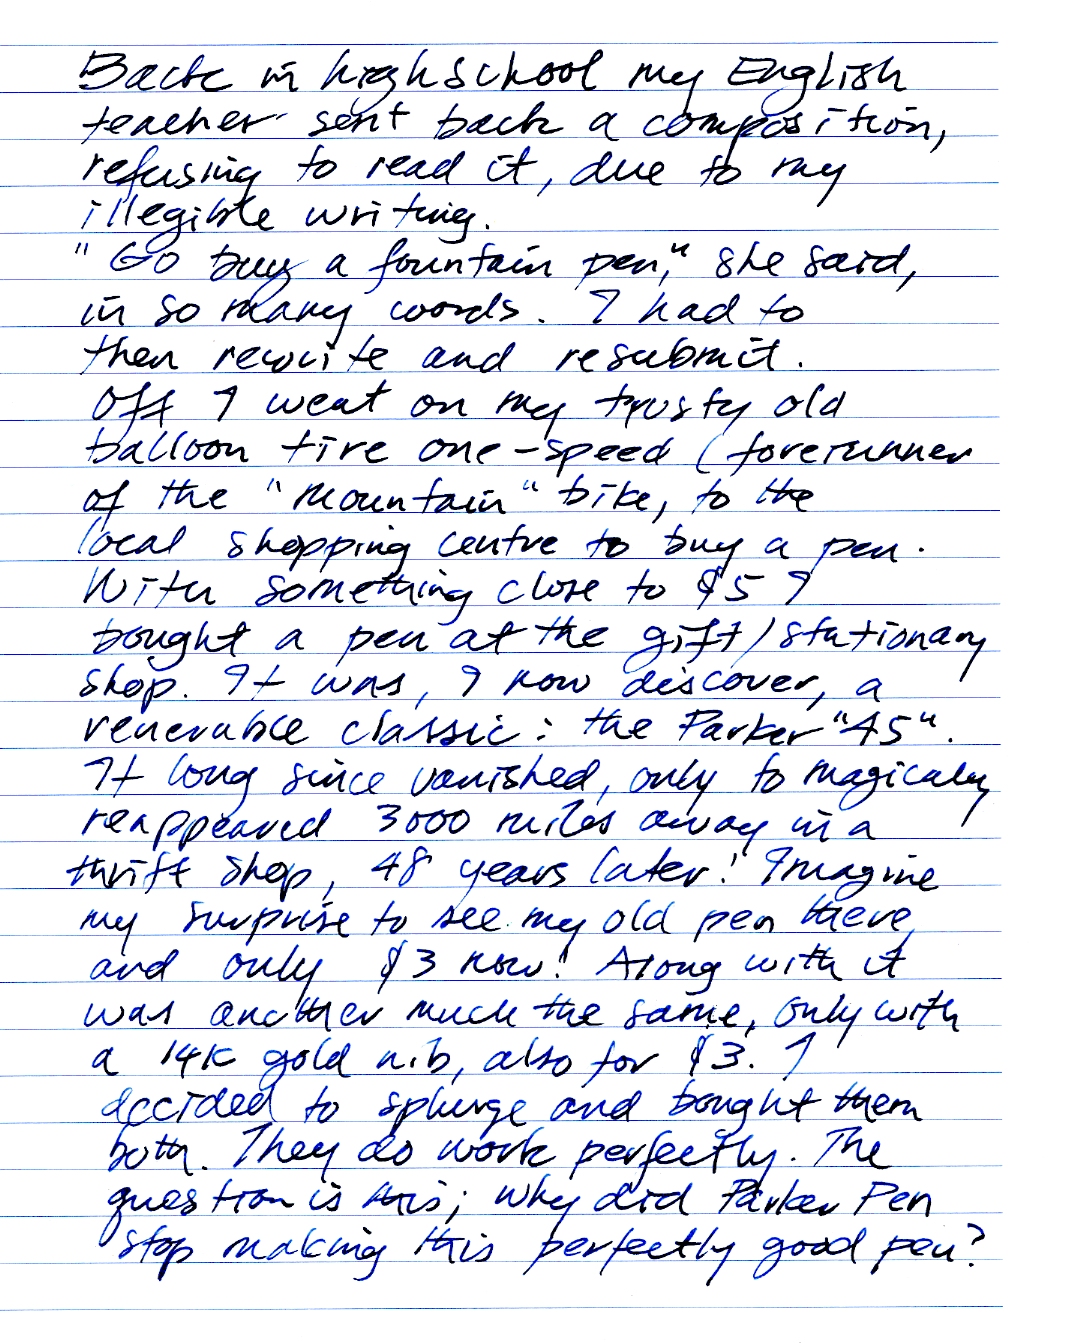 Back in highschool my English
teacher sent back a composition,
refusing to read it, due to my
illegible writing.
"Go buy a fountain pen," she said,
in so many words. I had to
then rewrite and resubmit.
Off I went on my trusty old
balloon tire one-speed (forerunner
of the "mountain" bike, to the
local shopping centre to buy a pen.
With something close to $5 I
bought a pen at the gift/stationary
shop. It was, I now discover, a
venerable classic: the Parker "45".
It long since vanished, only to magicaly
reappeared 3000 miles away in a
thrift shop, 48 years later! Imagine
my surprise to see my old pen there,
and only $3 now! Along with it
was another much the same, only with
a 14K gold nib, also for $3. I
decided to splurge and bought them
both. They do work perfectly. The
question is this; why did Parker Pen
stop making this perfectly good pen?